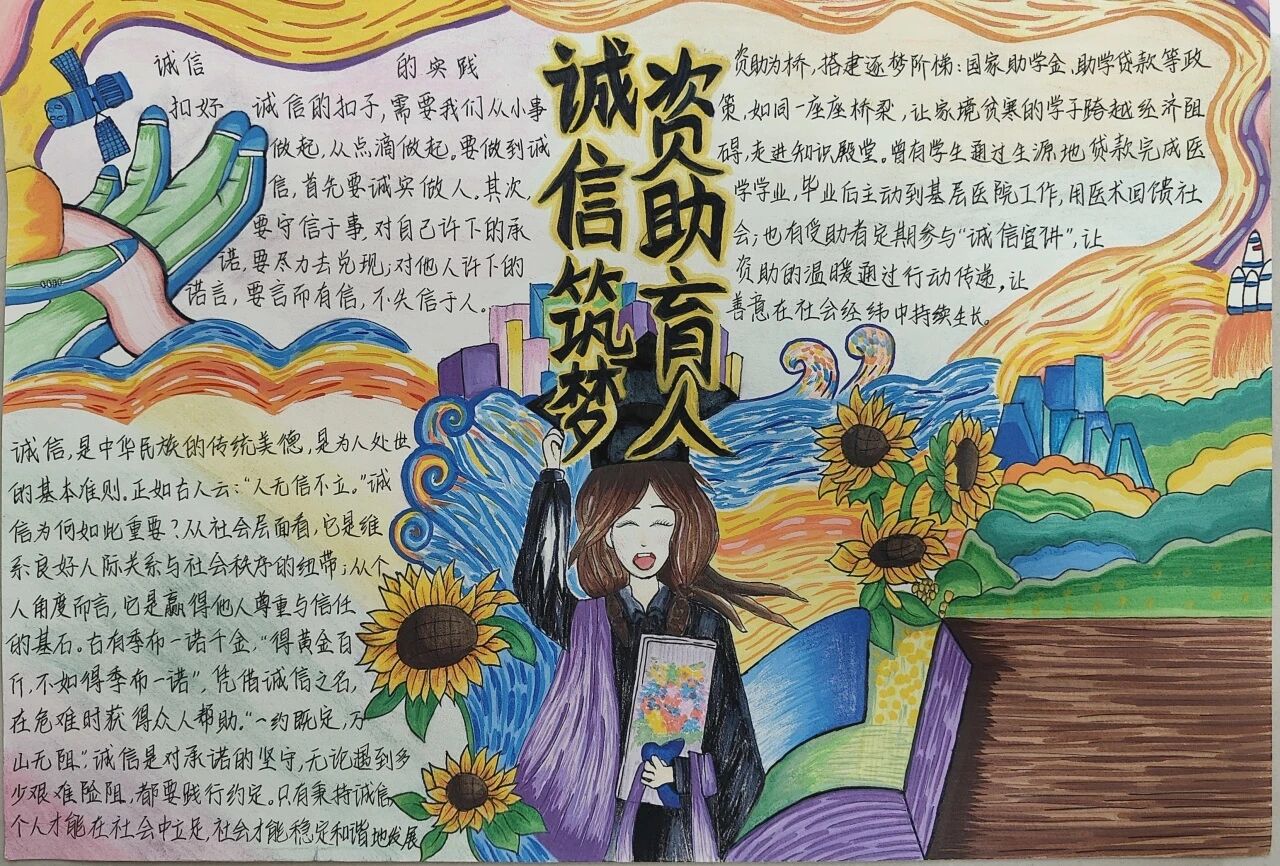 诚信筑梦
资助育人
诚信 的实践
扣好 诚信的扣子,需要我们从小事
做起,从点滴做起。要做到诚
信,首先要诚实做人。其次,
要守信于事 对自己许下的承
诺,要尽力去兑现;对他人许下的
诺言,要言而有信,不失信于人。
资助为桥,搭建逐梦阶梯:国家助学金、助学贷款等政
策,如同一座座桥梁,让家境贫寒的学子跨越经济阻
碍,走进知识殿堂。曾有学生通过生源地贷款完成医
学学业,毕业后主动到基层医院工作,用医术回馈社
会;也有受助者定期参与“诚信宣讲”,让
资助的温暖通过行动传递,让
善意在社会经纬中持续生长。
诚信,是中华民族的传统美德,是为人处世
的基本准则.正如古人云:“人无信不立。”诚
信为何如此重要?从社会层面看,它是维
系良好人际关系与社会秩序的纽带;从个
人角度而言,它是赢得他人尊重与信任
的基石。古有季布一诺千金,“得黄金百
斤,不如得季布一诺”,凭借诚信之名,
在危难时获得众人帮助。“一约既定,万
山无阻”,诚信是对承诺的坚守,无论遇到多
少艰难险阻,都要践行约定。只有秉持诚信
个人才能在社会中立足,社会才能稳定和谐地发展